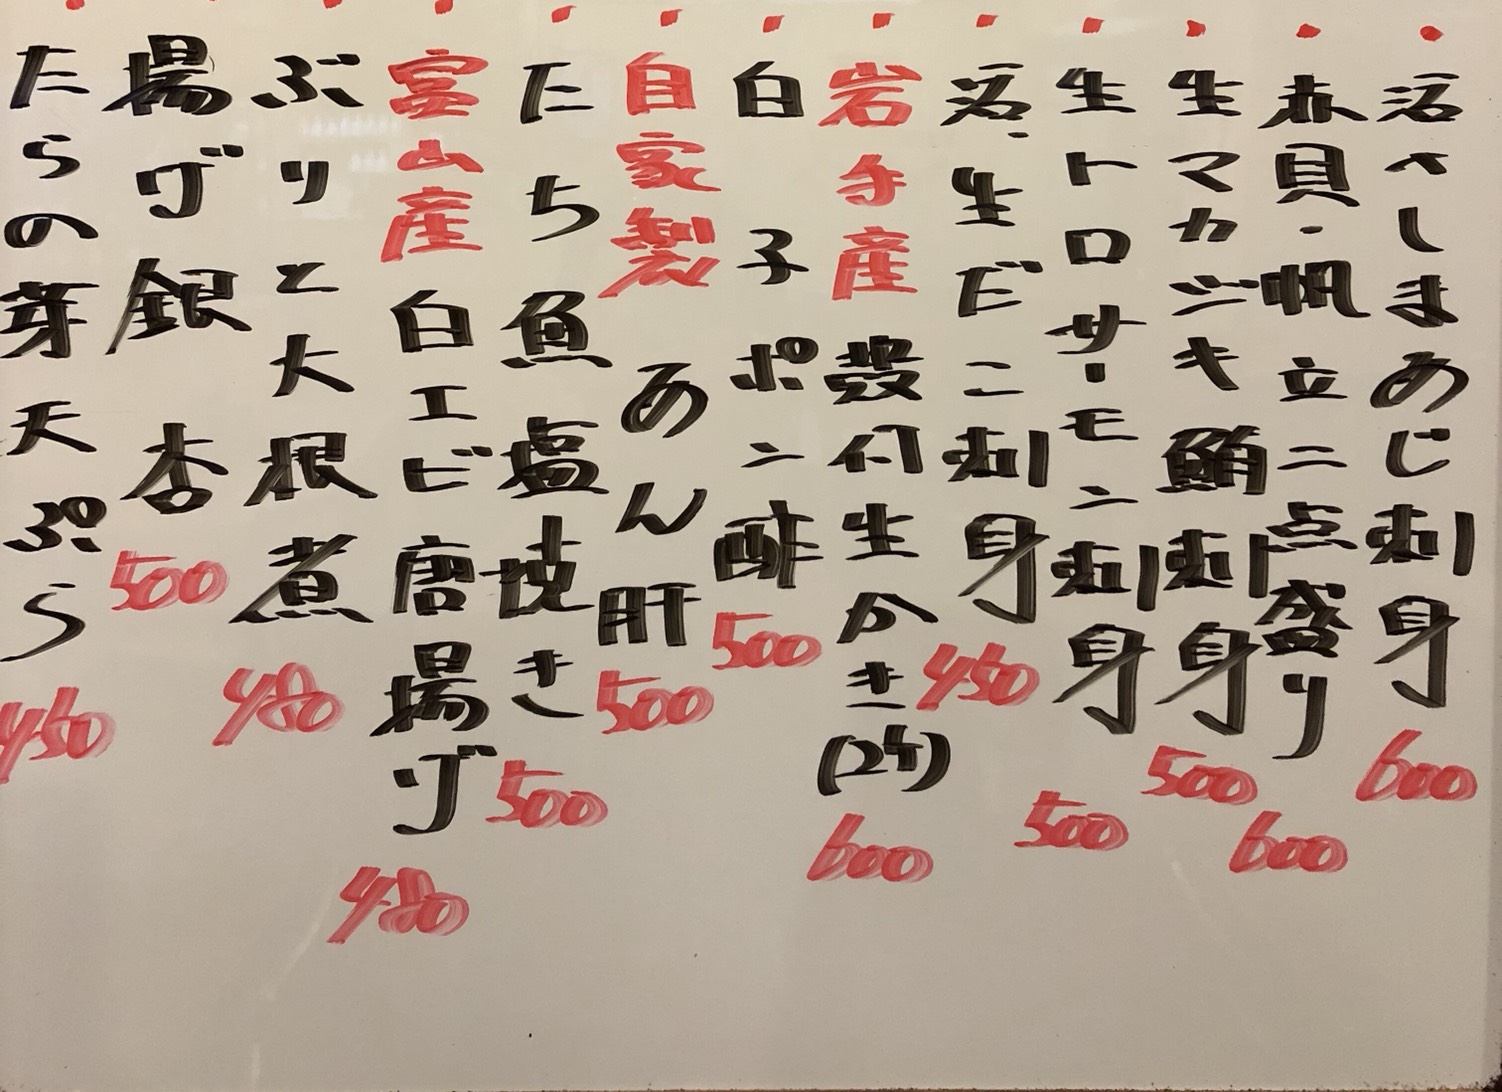 活〆しまあじ刺身 600
赤貝・帆立二点盛り 600
生マカジキ鮪刺身 500
生トロサーモン刺身 500
活・生ダこ刺身 450
岩手産 殻付生かき(2ケ) 600
白子ポン酢 500
自家製 あん肝 500
たち魚塩焼き 500
富山産 白エビ唐揚げ 480
ぶりと大根煮 480
揚げ銀杏 500
たらの芽天ぷら 450